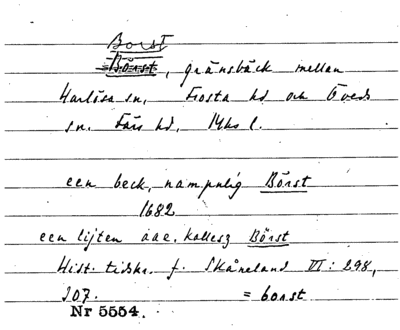 Borst
Börst, gränsbäck mellan
Harlösa sn, Frosta hd och Öveds
sn, Färs hd, Malmöhus l.
een beck, nampnlig Börst
1682
een lijten åae, kallesz Börst
Hist. tidskr. f. Skåneland VI: 298,
307. = borst
Nr 5554.